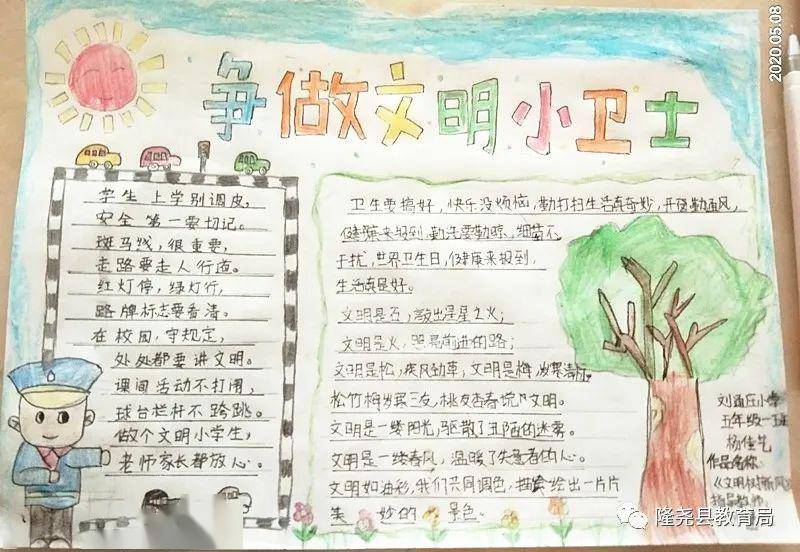 2020.05.08
争做文明小卫士
学生上学别调皮,
安全第一要切记。
斑马线,很重要,
走路要走人行道。
红灯停,绿灯行,
路牌标志要看清。
在校园,守规定,
处处都要讲文明。
课间活动不打闹,
球台栏杆不跨跳。
做个文明小学生,
老师家长都放心。
卫生要搞好,快乐没烦恼,勤打扫生活真奇妙,开窗勤通风,
健康来报到,勤洗要勤晾,细菌不
干扰,世界卫生日,健康来报到,
生活真是好。
文明是石,敲出星星之火;
文明是火,照亮前进的路;
文明是松,疾风劲草,文明是梅,岁寒
松竹梅岁寒三友,桃友杏春 文明。
文明是一缕阳光,驱散了丑陋的迷雾。
文明是一缕春风,温暖了失意者的心。
文明如油彩,我们共同调色,描绘出一片片
美妙的景色。
刘 庄小学
五年级一班
杨佳艺
作品名称:
《文明树新风》
指导教师:
隆尧县教育局